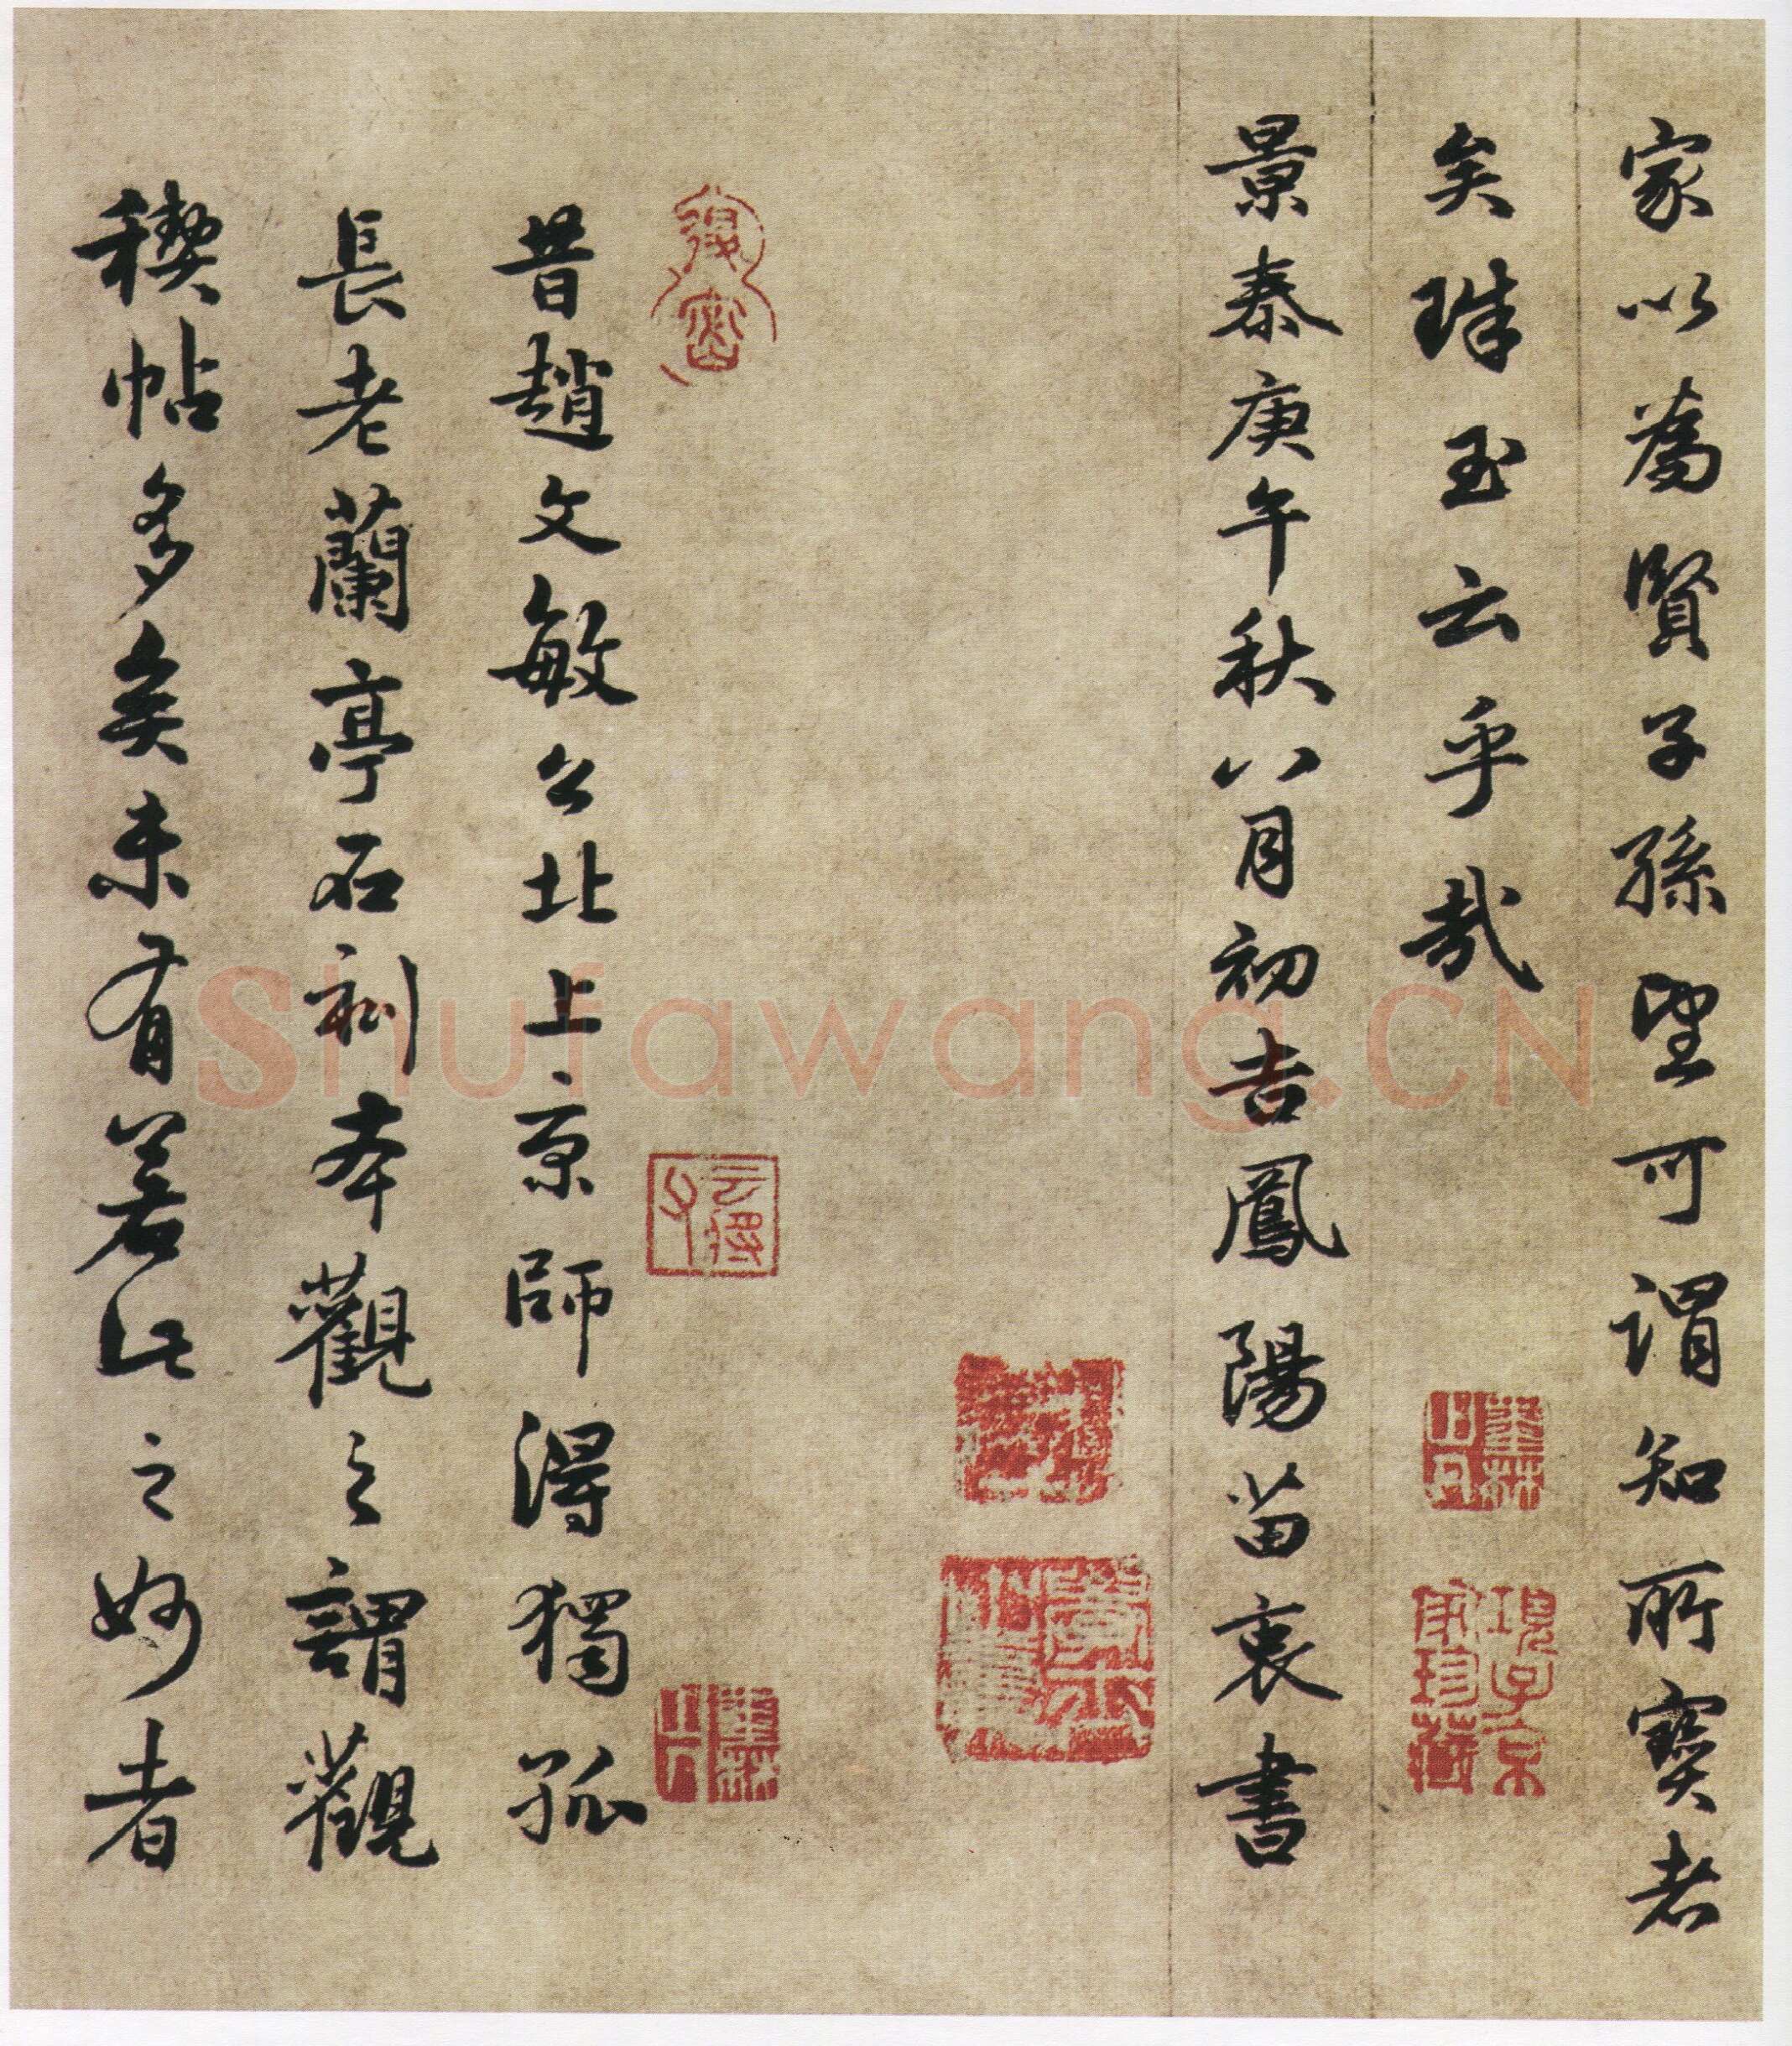 家以為賢子孫望可謂知所寶者
矣珠玉云乎哉
景泰庚午秋八月初吉鳳陽苗衷書
項子京家珍藏
昔趙文敏公北上京師得獨孤
長老蘭亭石刻本觀之謂觀
稧帖多矣未有若此之妙者
Shufawang.CN